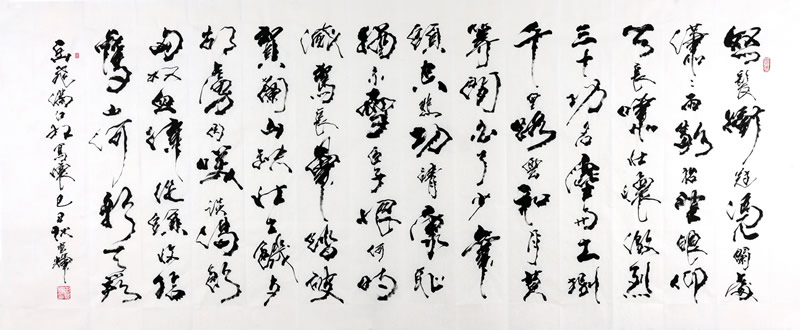 怒髮衝冠憑闌處
瀟瀟雨歇抬望眼仰
天長嘯壯懷激烈
三十功名塵与土
千里路雲和月莫
等閒白了少年
頭空悲切靖康恥
猶未雪臣子恨何時
滅駕長車踏破
賀蘭山缺壯志飢餐
胡虜肉笑談渴飲
匈奴血待從頭收拾
舊山河朝天闕
岳飛滿江紅寫懷己丑秋